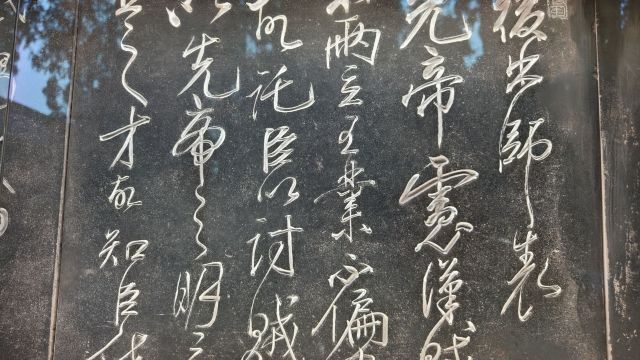 後出師表
先帝慮漢賊
不兩立王業不偏
故託臣以討賊
以先帝之明
臣之才故知臣伐